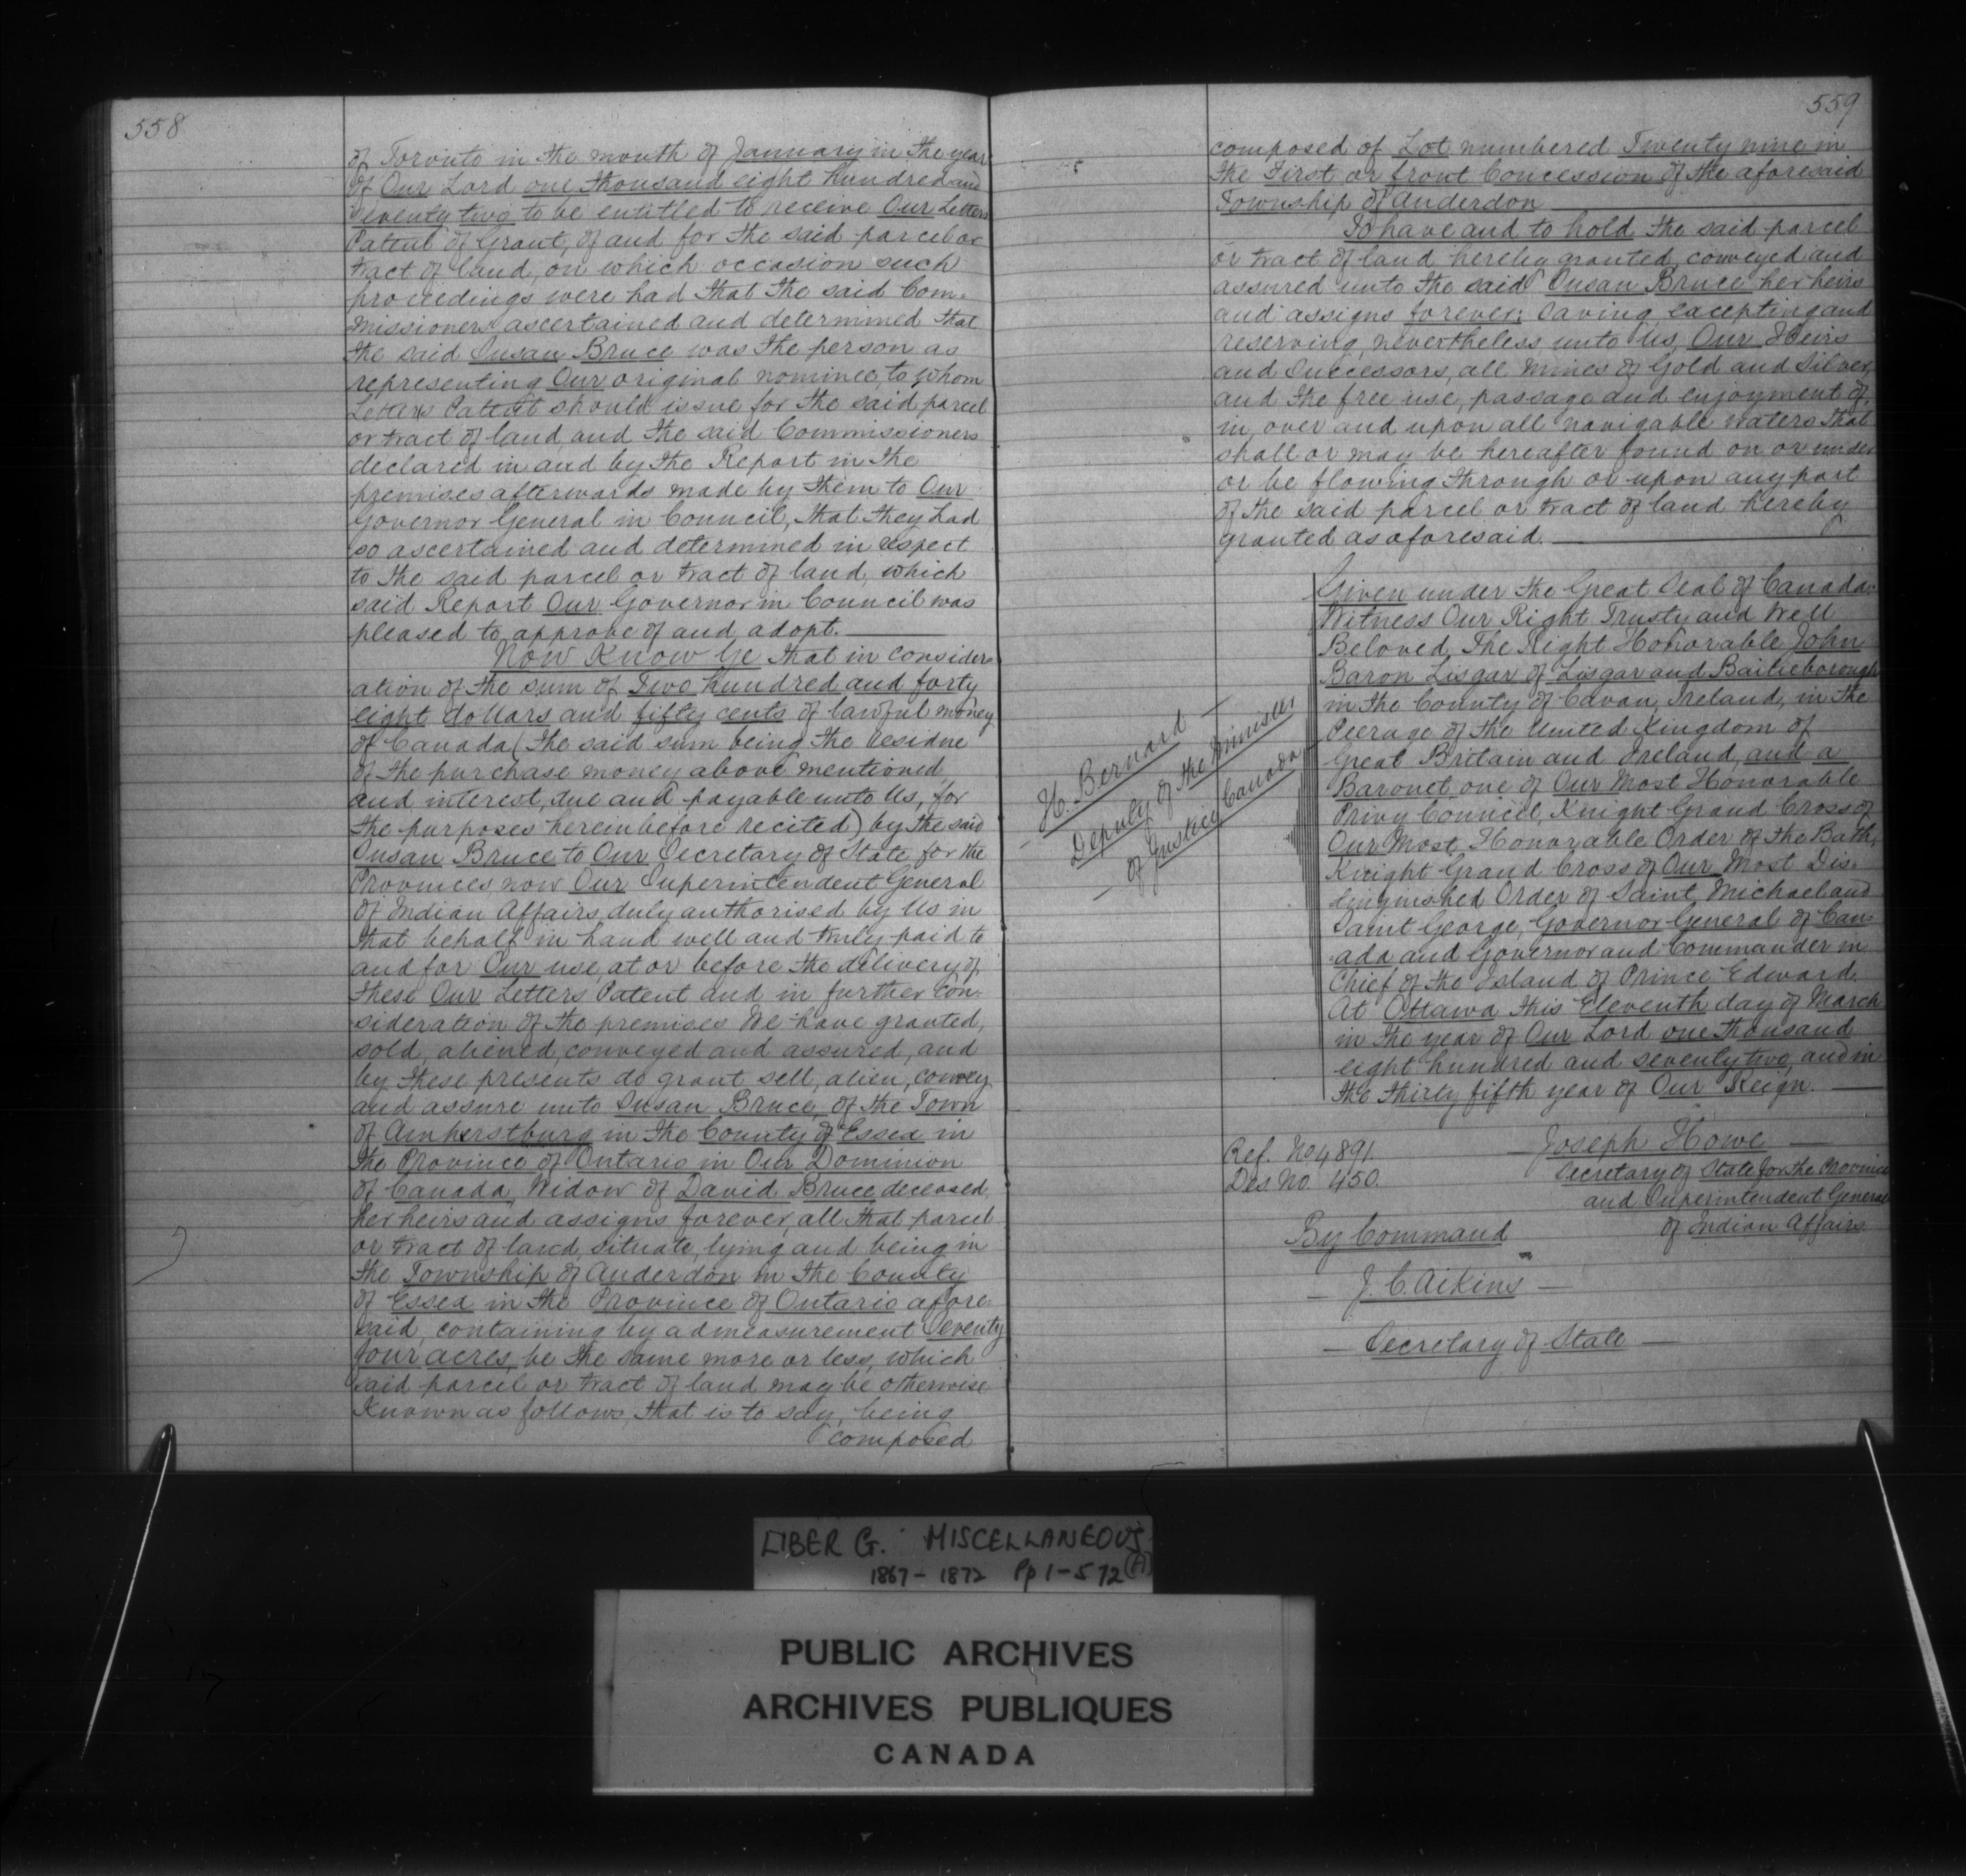 558
of Toronto in the month of January in the year
of Our Lord one thousand eight hundred and
seventy two to be entitled to receive Our Letters
Patent of Grant, of and for the said parcel or
tract of land, on which occasion such
proceedings were had that the said Com-
missioners ascertained and determined that
the said Susan Bruce was the person as
representing Our original nominee, to whom
Letters Patent should issue for the said parcel
or tract of land and the said Commissioners
declared in and by the Report in the
premises afterwards made by them to Our
Governor General in Council, that they had
so ascertained and determined in respect
to the said parcel or tract of land, which
said Report Our Governor in Council was
pleased to approve of and adopt.
Now Know Ye that in consider-
ation of the sum of Two hundred and forty
eight dollars and fifty cents of lawful money
of Canada (the said sum being the residue
of the purchase money above mentioned
and interest, due and payable unto Us, for
the purposes hereinbefore recited) by the said
Susan Bruce to Our Secretary of State for the
Provinces now Our Superintendent General
of Indian Affairs, duly authorised by Us in
that behalf in hand well and truly paid to
and for Our use, at or before the delivery of
these Our Letters Patent and in further con-
sideration of the premises We have granted,
sold, aliened, conveyed and assured, and
by these presents do grant sell, alien, convey
and assure unto Susan Bruce, of the Town
of Amherstburg in the County of Essex in
the Province of Ontario in Our Dominion
of Canada, Widow of David Bruce deceased,
her heirs and assigns forever, all that parcel
or tract of land, situate, lying and being in
the Township of Anderdon in the County
of Essex in the Province of Ontario afore-
said, containing by admeasurement Seventy
four acres, be the same more or less, which
said parcel or tract of land may be otherwise
Known as follows, that is to say, being
composed
559
composed of Lot numbered Twenty nine in
the First or front Concession of the aforesaid
Township of Anderdon
To have and to hold the said parcel
or tract of land hereby granted, conveyed and
assured unto the said Susan Bruce her heirs
and assigns forever; Saving excepting and
reserving, nevertheless unto Us, Our Heirs
and Successors, all Mines of Gold and Silver,
and the free use, passage and enjoyment of,
in, over and upon all navigable waters that
shall or may be hereafter found on or under
or be flowing through or upon any part
of the said parcel or tract of land hereby
granted as aforesaid.
Given under the Great Seal of Canada.
Witness Our Right Trusty and Well
Beloved, The Right Honorable John
Baron Lisgar of Lisgar and Bailieborough
in the County of Cavan, Ireland, in the
Peerage of the United Kingdom of
Great Britain and Ireland, and a
Baronet, one of Our Most Honorable
Privy Council, Knight Grand Cross of
Our Most Honorable Order of the Bath,
Knight Grand Cross of Our Most Dis-
tinguished Order of Saint Michael and
Saint George, Governor General of Can-
ada and Governor and Commander in
Chief of the Island of Prince Edward.
At Ottawa this Eleventh day of March
in the year of Our Lord one thousand
eight hundred and seventy two, and in
the thirty fifth year of Our Reign.
H. Bernard
Deputy of the Minister
of Justice, Canada
Ref. No 4891.
Des No. 450.
Joseph Howe
Secretary of State for the Provinces
and Superintendent General
of Indian Affairs
By Command
J. C. Aikins
Secretary of State
LIBER G. MISCELLANEOUS
1867 - 1872 Pp 1-572 (A)
PUBLIC ARCHIVES
ARCHIVES PUBLIQUES
CANADA